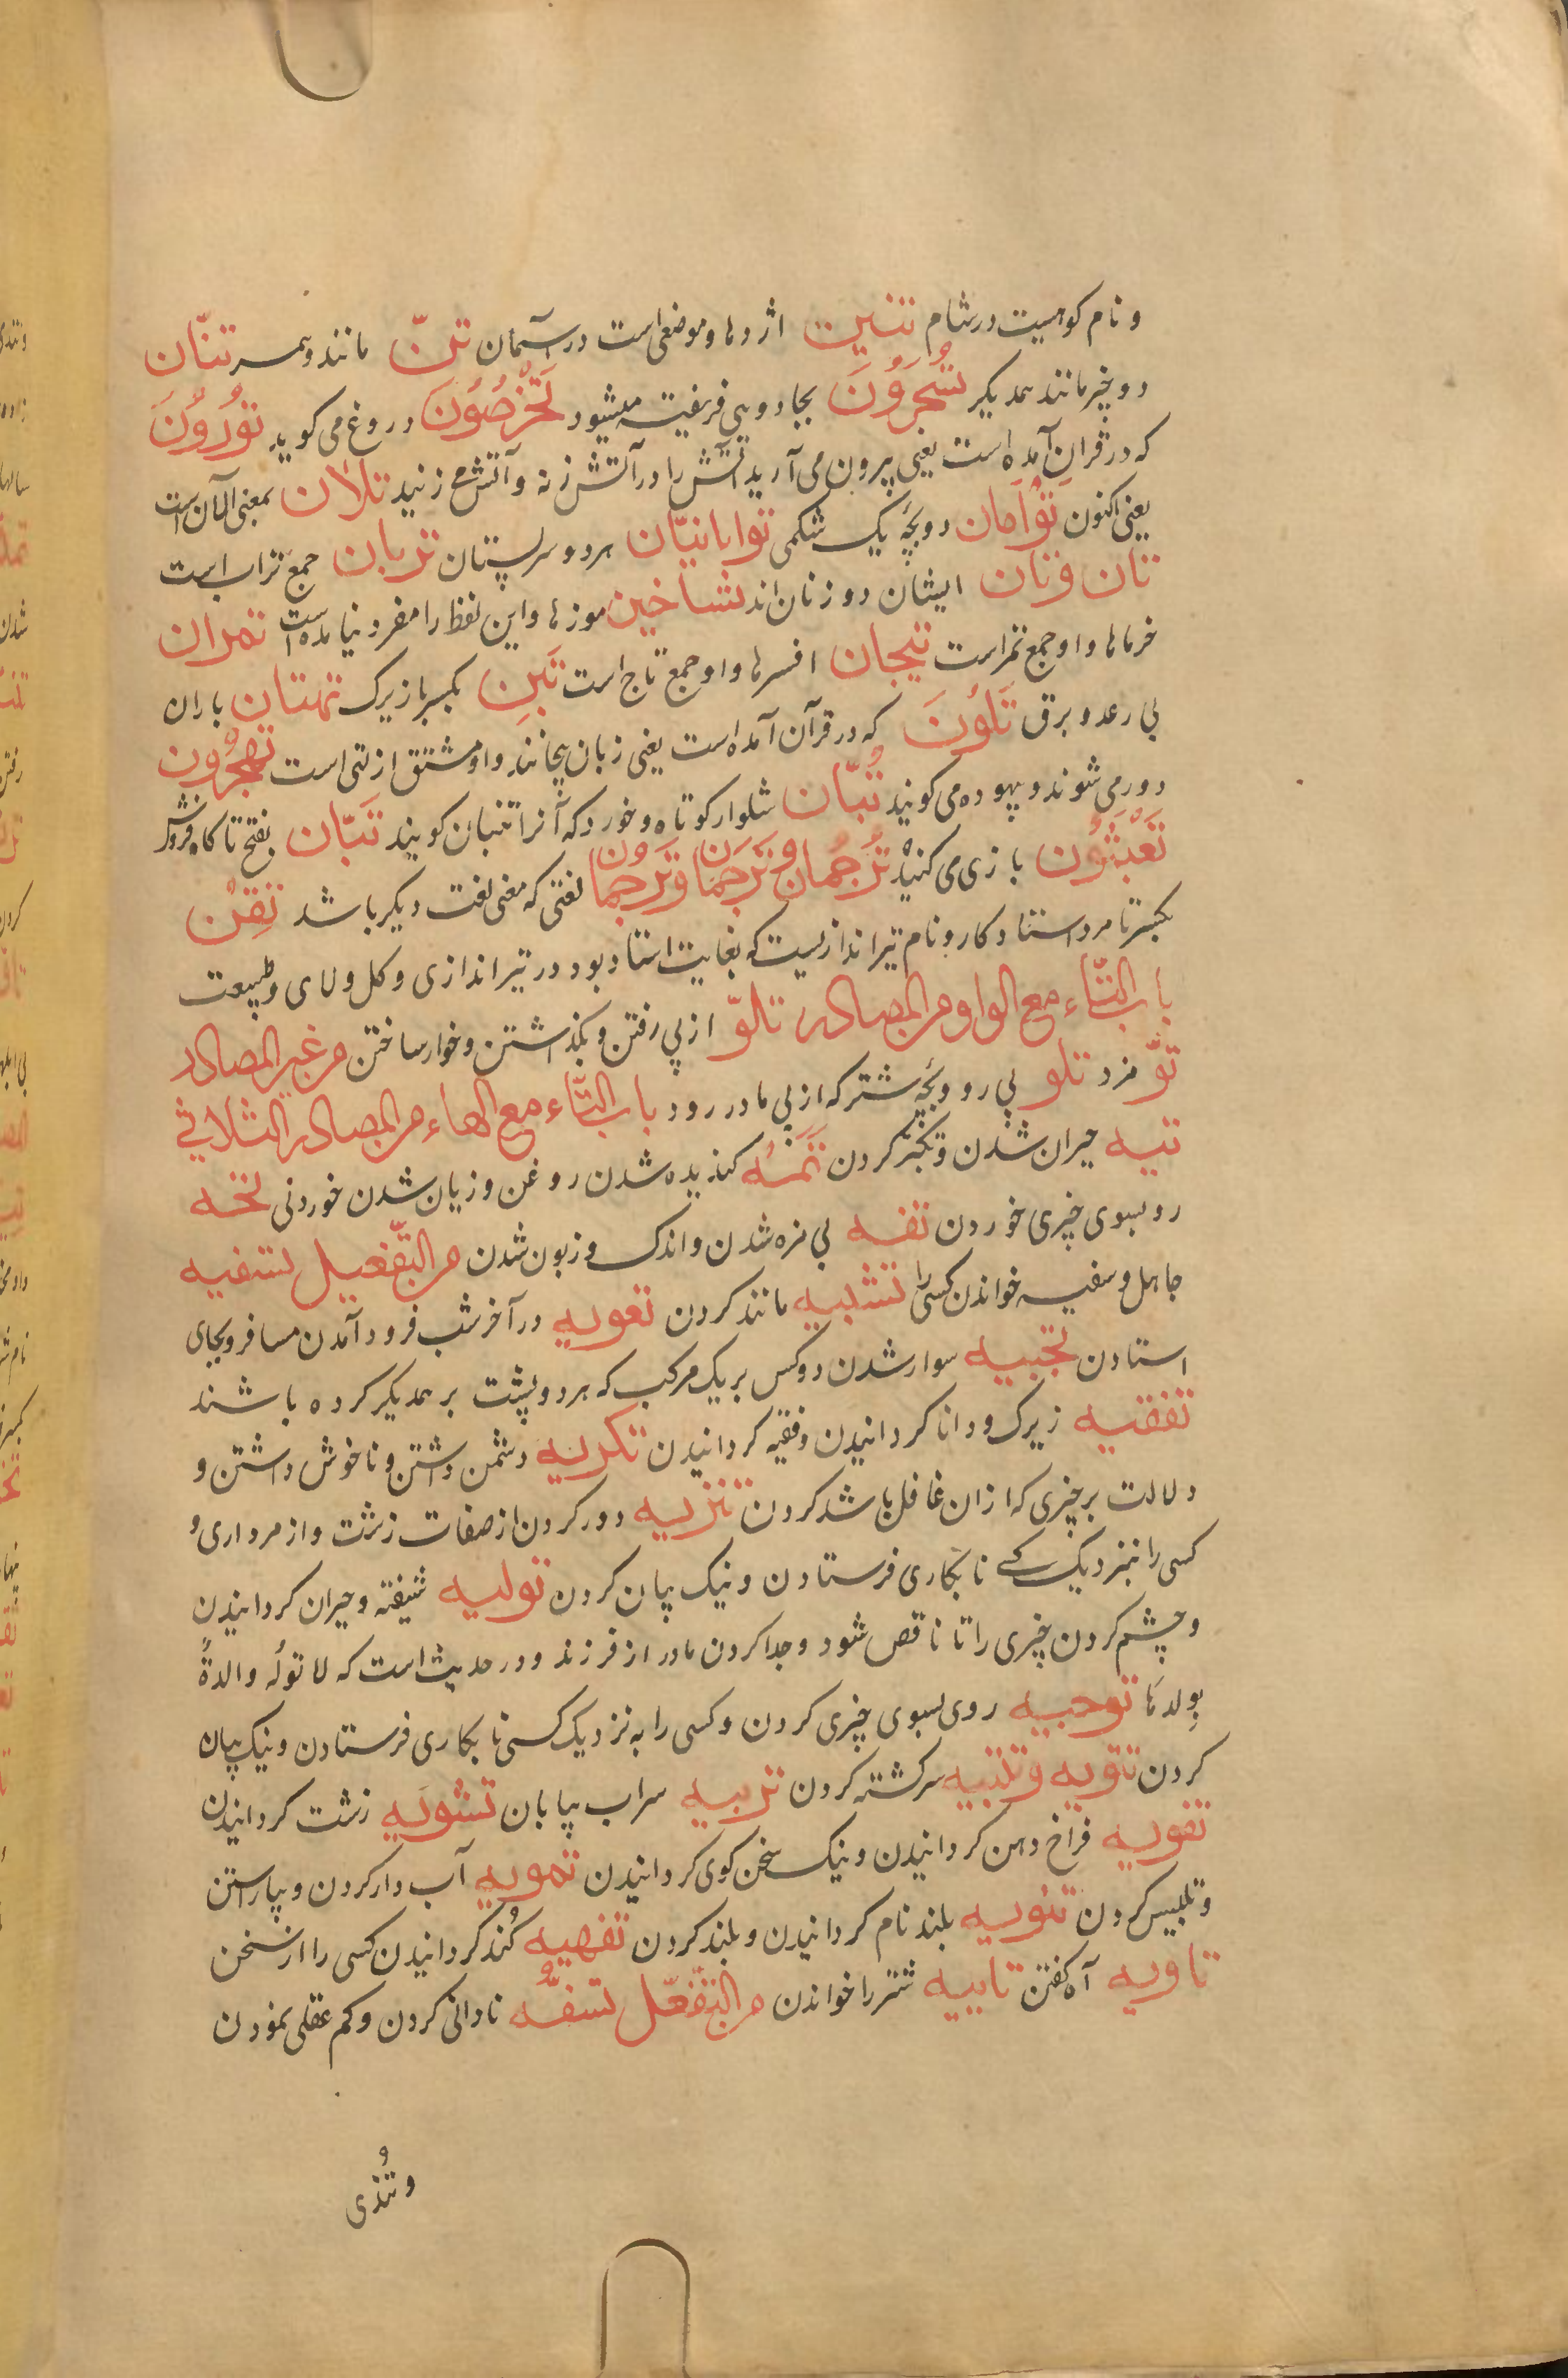 و نام کوهیست در شام تنین اژدها و موضعی است در آسمان تنّ مانند و همسر تنّان
دو چیز مانند همدیکر تُسْحَرُوْنَ بجادویی فریفته میشود تَخْرُصُوْنَ دروغ می کوید تُوْرُوْنَ
که در قران آمده است یعنی بیرون می آرید آتش را در آتش زنه و آتش می زنید تلان بمعنی الآن است
یعنی اکنون تَوْأَمان دو بچّه یک شکمی توابانیّان هر دو سر پستان تربان جمع تراب است
تان فرتان ایشان دو زنان اند تساخین موزها و این لفظ را مفرد نیامده است تمران
خرماها و او جمع تمر است تیجان افسرها و او جمع تاج است تَبِن بکسر با زیرک تهتان باران
بی رعد و برق تَلوُنَ که در قرآن آمده است یعنی زبان پیچانند و او مشتق از لتی است تَهْجُرُون
دور می شوند و بیهوده می کویند تُبّان شلوار کوتاه و خورد که آنرا تنبان کویند تَبّان بفتح تا کاه فروش
تَعْبَثُوْن بازی می کنید تَرجُمان و تَرجَمان و تُرجُمان لغتی که معنی لغت دیکر باشد تِقْن
بکسر تا مرد استاد کار و نام تیراندازیست که بغایت استاد بود در تیر اندازی و کل و لای و طبیعت
باب التّاء مع الواو من المصادر تلوّ از پی رفتن و بکذاشتن و خوار ساختن من غیر المصادر
توّ مزد تلو پی رو و بچّه شتر که از پی مادر رود باب التّاء مع الهاء من المصادر الثلاثی
تیه حیران شدن و تکبّر کردن تَمَه کندیده شدن روغن و زیان شدن خوردنی تخه
رو بسوی چیزی خوردن تفه بی مزه شدن و اندک و زبون شدن من التّفعیل تسفیه
جاهل و سفیه خواندن کسی را تشبیه مانند کردن تعویه در آخر شب فرود آمدن مسافر و بجای
استادن تجبیه سوار شدن دو کس بر یک مرکب که هر دو پشت بر همدیکر کرده باشند
تفقیه زیرک و دانا کردانیدن و فقیه کردانیدن تکریه دشمن داشتن و ناخوش داشتن و
دلالت بر چیزی که ازان غافل باشد کردن تنزیه دور کردن از صفات زشت و از مرداری و
کسی را بنزدیک کسی تا بکاری فرستادن و نیک بیان کردن تولیه شیفته و حیران کردانیدن
و چشم کردن چیزی را تا ناقص شود و جدا کردن مادر از فرزند و در حدیث است که لا تولّه والدةً
بِولدها توجیه روی بسوی چیزی کردن و کسی را به نزدیک کسی تا بکاری فرستادن و نیک بیان
کردن تتویه و تلتیه سرکشته کردن تربیه سراب بیابان تشویه زشت کردانیدن
تفویه فراخ دهن کردانیدن و نیک سخن کوی کردانیدن تمویه آب دار کردن و بیاراستن
و تلبیس کردن تنویه بلند نام کردانیدن و بلند کردن تفهیه کُند کردانیدن کسی را از سخن
تاویه آه کفتن تابیه شتر را خواندن من التّفعّل تسفّه نادانی کردن و کم عقلی نمودن
و تُندی